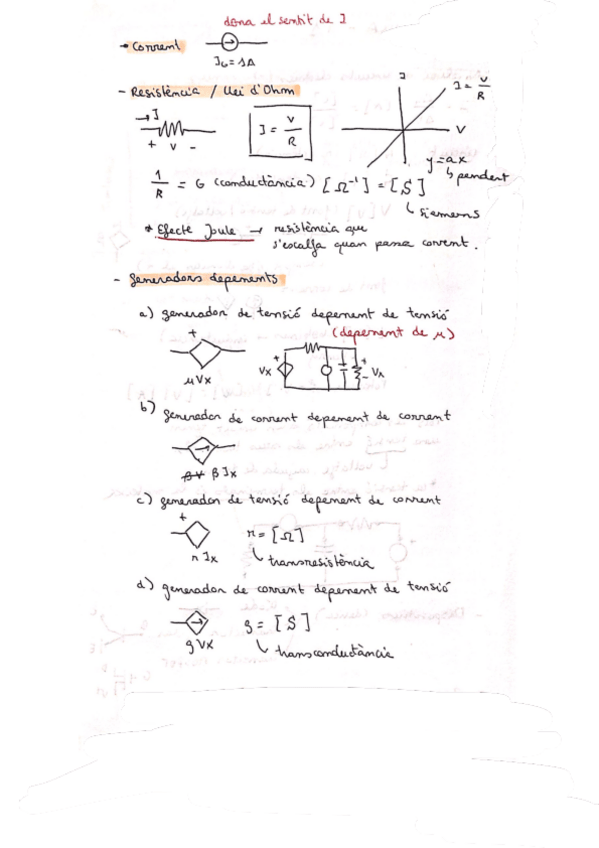 dona el sentit de I
→ Corrent
IG = 1A
- Resistència / Llei d'Ohm
→ I
+ V -
I = V/R
I
V
I = V/R
y = ax
↳ pendent
1/R = G (conductància) [Ω⁻¹] = [S]
↳ siemens
* Efecte Joule → resistència que
s'escalfa quan passa corrent.
- Generadors depenents
a) generador de tensió depenent de tensió
(depenent de μ)
+
μVx
+
Vx
+
-
Vx
b) generador de corrent depenent de corrent
βIx
c) generador de tensió depenent de corrent
+
r Ix
r = [Ω]
↳ transresistència
d) generador de corrent depenent de tensió
gVx
g = [S]
↳ transconductància